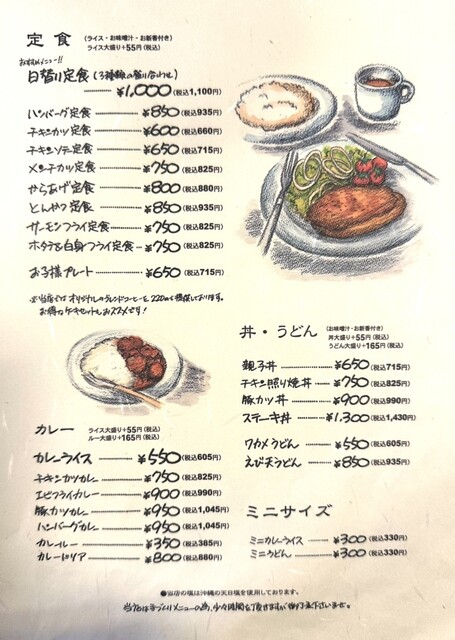 定食 (ライス・お味噌汁・お新香付き)
ライス大盛り+55円(税込)
おすすめメニュー!!
日替り定食(3種類の盛り合わせ)
¥1,000(税込1,100円)
ハンバーグ定食 ¥850(税込935円)
チキンカツ定食 ¥600(税込660円)
チキンソテー定食 ¥650(税込715円)
メンチカツ定食 ¥750(税込825円)
からあげ定食 ¥800(税込880円)
とんかつ定食 ¥850(税込935円)
サーモンフライ定食 ¥750(税込825円)
ホタテ&白身フライ定食 ¥750(税込825円)
お子様プレート ¥650(税込715円)
※当店ではオリジナルのブレンドコーヒーを220円で提供しております。
お得なケーキセットもおススメです!
カレー ライス大盛り+55円(税込)
ルー大盛り+165円(税込)
カレーライス ¥550(税込605円)
チキンカツカレー ¥750(税込825円)
エビフライカレー ¥900(税込990円)
豚カツカレー ¥950(税込1,045円)
ハンバーグカレー ¥950(税込1,045円)
カレールー ¥350(税込385円)
カレードリア ¥800(税込880円)
丼・うどん (お味噌汁・お新香付き)
丼大盛り+55円(税込)
うどん大盛り+165円(税込)
親子丼 ¥650(税込715円)
チキン照り焼丼 ¥750(税込825円)
豚カツ丼 ¥900(税込990円)
ステーキ丼 ¥1,300(税込1,430円)
ワカメうどん ¥550(税込605円)
えび天うどん ¥850(税込935円)
ミニサイズ
ミニカレーライス ¥300(税込330円)
ミニうどん ¥300(税込330円)
●当店の塩は沖縄の天日塩を使用しております。
当店は手づくりメニューの為、少々時間を頂きますが御了承下さいませ。